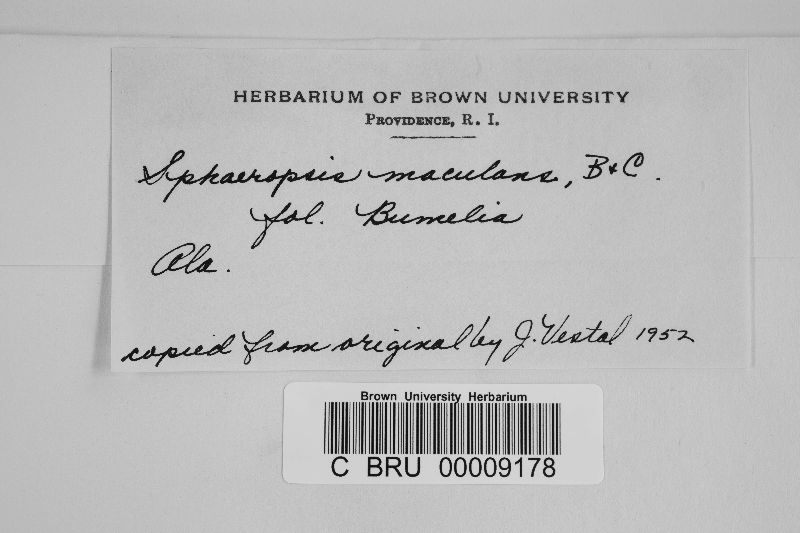 HERBARIUM OF BROWN UNIVERSITY
PROVIDENCE, R. I.
Sphaeropsis maculans, B & C.
fol. Bumelia
Ala.
copied from original by J. Vestal 1952
Brown University Herbarium
C BRU 00009178